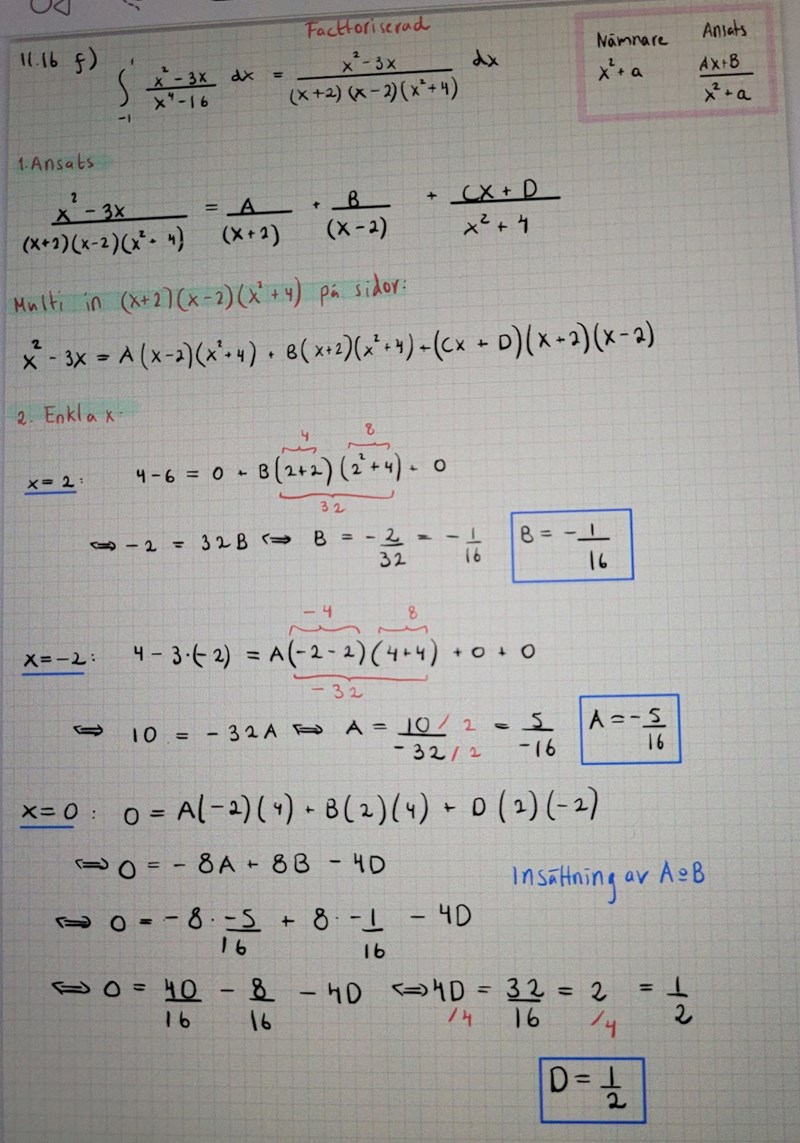 Facttoriserad
11.16 f) ∫₋₁¹ (x² - 3x)/(x⁴ - 16) dx = (x² - 3x)/((x+2)(x-2)(x²+4)) dx
Nämnare Ansats
x² + a (Ax+B)/(x² + a)
1. Ansats
(x² - 3x)/((x+2)(x-2)(x²+4)) = A/(x+2) + B/(x-2) + (Cx + D)/(x² + 4)
Multi in (x+2)(x-2)(x²+4) på sidor:
x² - 3x = A(x-2)(x²+4) + B(x+2)(x²+4) + (Cx + D)(x+2)(x-2)
2. Enkla x.
4 8
x = 2: 4 - 6 = 0 + B(2+2)(2²+4) + 0
32
⟺ -2 = 32B ⟺ B = -2/32 = -1/16 B = -1/16
-4 8
x = -2: 4 - 3·(-2) = A(-2-2)(4+4) + 0 + 0
-32
⟺ 10 = -32A ⟺ A = (10 / 2)/(-32 / 2) = 5/-16 A = -5/16
x = 0: 0 = A(-2)(4) + B(2)(4) + D(2)(-2)
⟺ 0 = -8A + 8B - 4D
Insättning av A o B
⟺ 0 = -8 · -5/16 + 8 · -1/16 - 4D
⟺ 0 = 40/16 - 8/16 - 4D ⟺ 4D = 32/16 = 2 = 1/2
/4 /4
D = 1/2